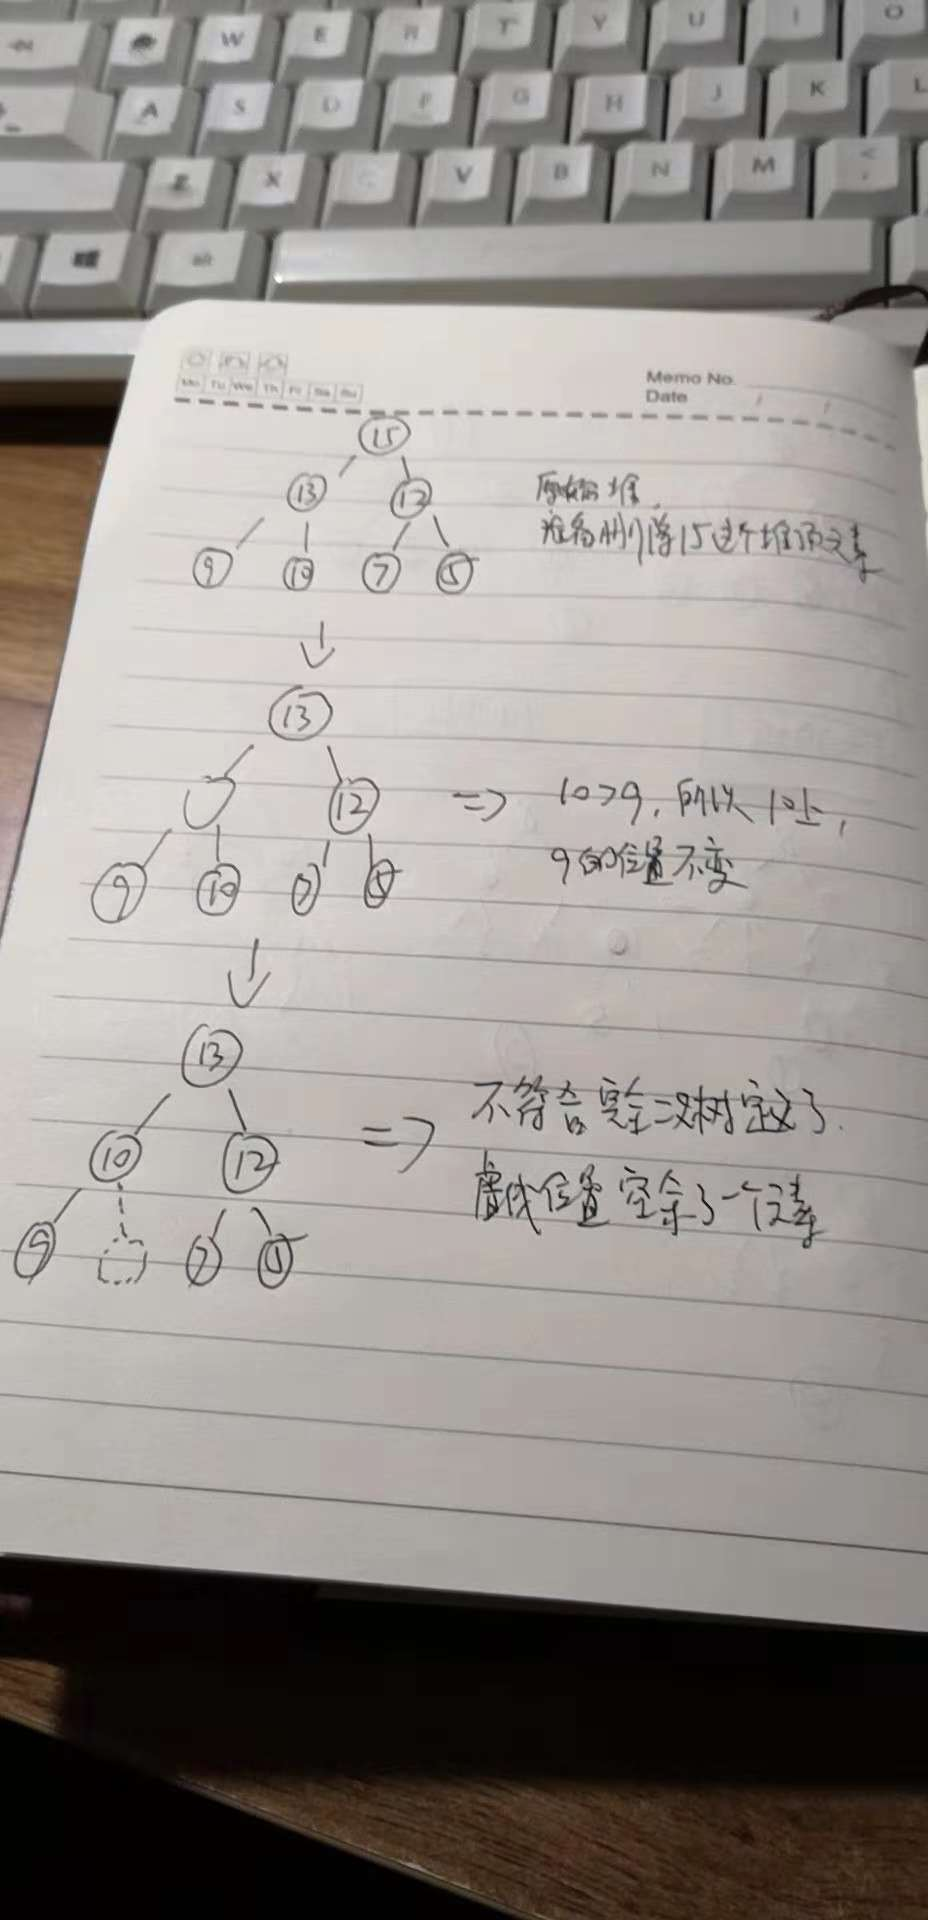 W E R T Y U I O
A S D F G H J K L
Z X C V B N M < ,
alt
Mo Tu We Th Fr Sa Su
Memo No.
Date / /
15
13 12
9 10 7 5
原始堆.
准备删除15这个堆顶元素
↓
13
12
9 10 7 5
=> 10>9, 所以 10上,
9的位置不变
↓
13
10 12
9 7 5
=> 不符合完全二叉树定义了.
虚线位置空余了一个元素